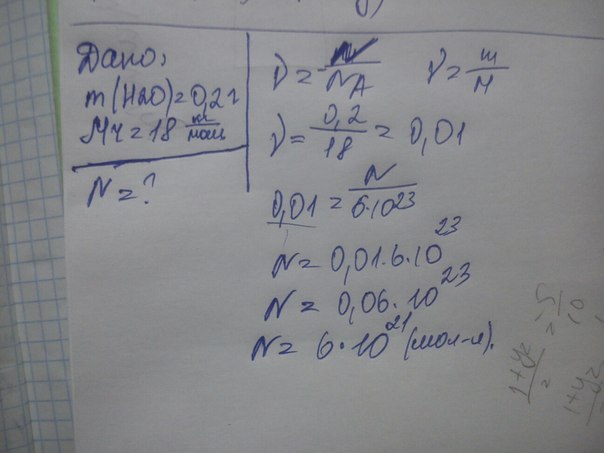 Дано:
m(H2O)=0,2г
Mr=18 кг/моль
N=?
ν=N/NA ν=m/M
ν=0,2/18=0,01
0,01=N/6·10²³
N=0,01·6·10²³
N=0,06·10²³
N=6·10²¹(мол-л).